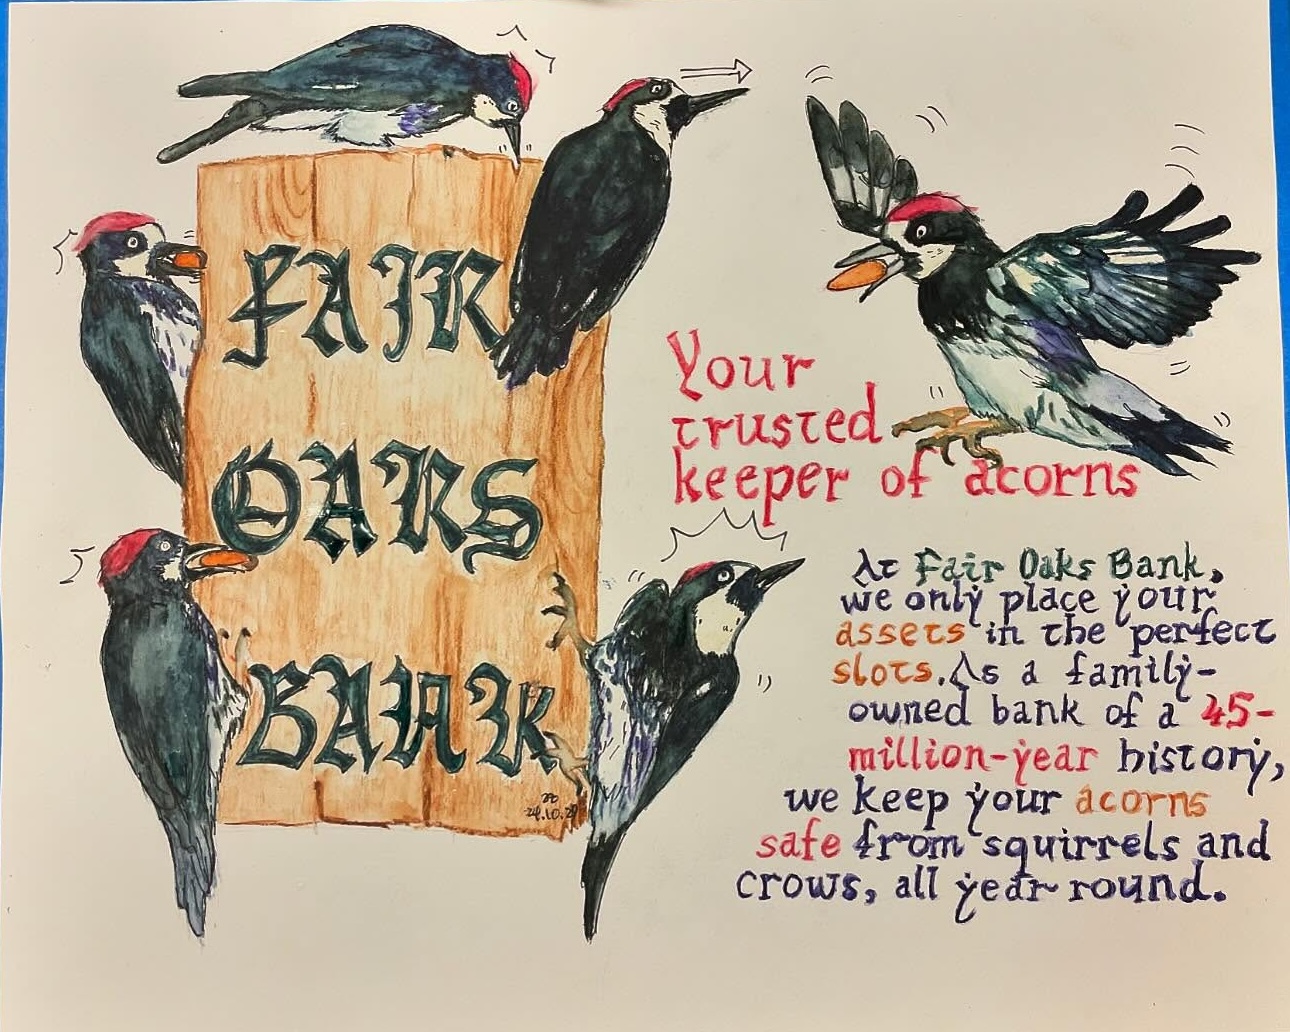 FAIR
OAKS
BANK
Your
trusted
keeper of acorns
At Fair Oaks Bank,
we only place your
assets in the perfect
slots. As a family-
owned bank of a 45-
million-year history,
we keep your acorns
safe from squirrels and
crows, all year round.